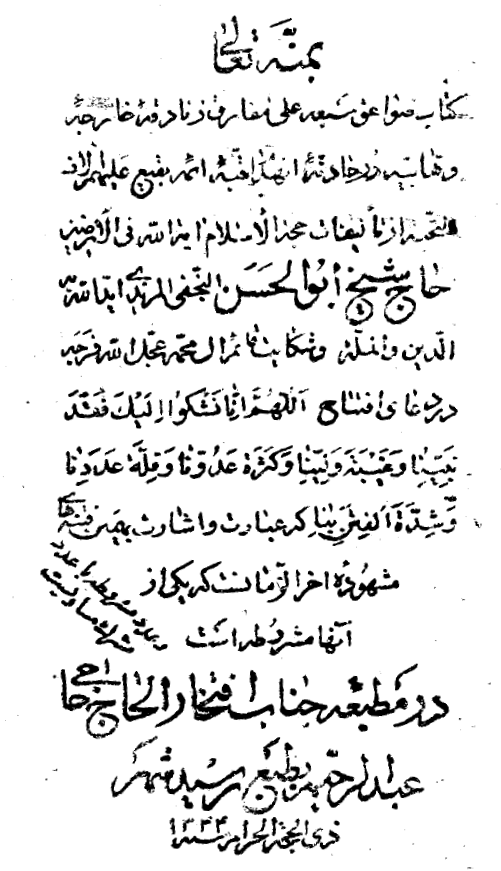 بمنّه تعالی
کتاب صواعق سبعه علی مفارق زنادقهٔ خارجیه
وهابیه در حادثهٔ انهدام قبهٔ ائمه بقیع علیهم الاف
التحیه از تألیفات حجة الاسلام ایة الله فی الارضین
حاج شیخ ابوالحسن النجفی المرندی اید الله به
الدین والملة وشکایت قائم ال محمد عجل الله فرجه
در دعای افتتاح اللهم انا نشکوا الیک فقد
نبینا وغیبة ولینا وکثرة عدونا وقلة عددنا
وشدة الفتن بنا که عبارت واشارت بهمین فتنه های
مشهودهٔ اخر الزمانست که یکی از
آنها مشروطه است
عدد مشروطه با عدد
مشرک مساویست
در مطبعه جناب افتخار الحاج حاجی
عبدالرحیم بطبع رسید شهر
ذی الحجة الحرام سنه